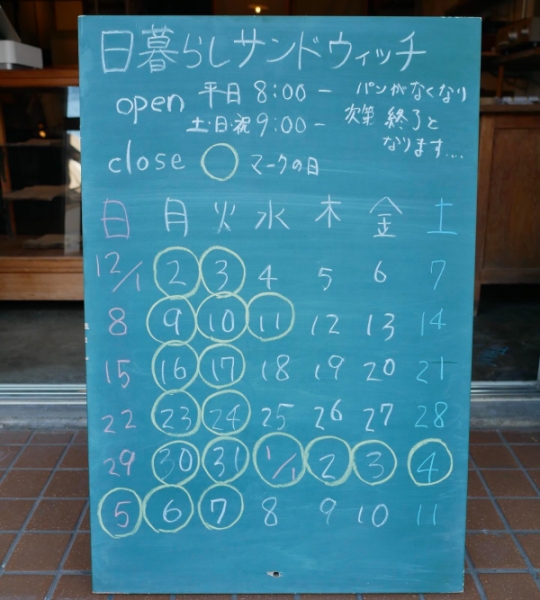 日暮らしサンドウィッチ
open 平日 8:00 - パンがなくなり
土・日・祝 9:00 - 次第 終了と
なります....
close ○ マークの日
日 月 火 水 木 金 土
12/1 2 3 4 5 6 7
8 9 10 11 12 13 14
15 16 17 18 19 20 21
22 23 24 25 26 27 28
29 30 31 1/1 2 3 4
5 6 7 8 9 10 11